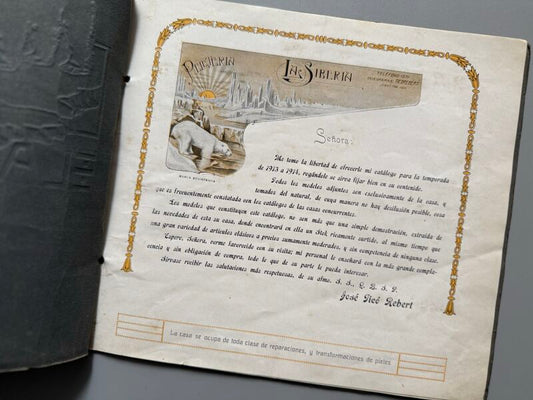 PELETERIA
LA SIBERIA
MARCA REGISTRADA
Señora:
Me tomo la libertad de ofrecerle mi catálogo para la temporada
de 1913 a 1914, rogándole se sirva fijar bien en su contenido.
Todos los modelos adjuntos son exclusivamente de la casa, y
tomados del natural, de cuya manera no hay desilusión posible, cosa
que es frecuentemente constatada con los catálogos de las casas concurrentes.
Los modelos que constituyen este catálogo, no son más que una simple demostración, extraida de
las novedades de esta su casa, donde encontrará en ella un Stok ricamente surtido, al mismo tiempo que
una gran variedad de artículos clásicos a precios sumamente moderados, y sin competencia de ninguna clase.
Espero, Señora, verme favorecido con su visita; mi personal le enseñará con la más grande complacencia
y sin obligación de compra, todo lo que de su parte le pueda interesar.
Sírvase recibir las salutaciones más respetuosas, de su afmo. S. S., Q. B. S. P.
José Neé Rebert
La casa se ocupa de toda clase de reparaciones, y transformaciones de pieles